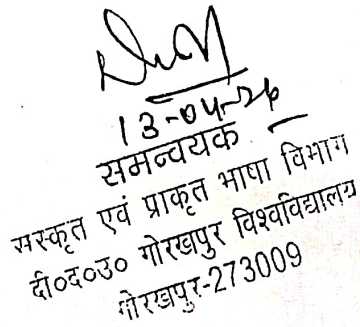 13-04-26
समन्वयक
संस्कृत एवं प्राकृत भाषा विभाग
दी०द०उ० गोरखपुर विश्वविद्यालय
गोरखपुर-273009